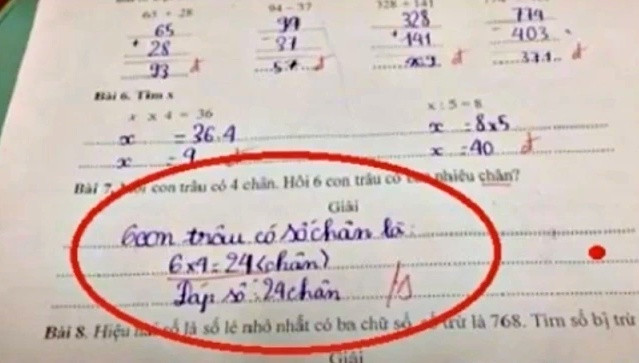 65 + 28 94 - 37 328 + 141
65 94 328 774
+ 28 - 37 + 141 - 403
93 57 469
Bài 6. Tìm x
x x 4 = 36 x : 5 = 8
x = 36:4 x = 8x5
x = 9 x = 40
Bài 7. con trâu có 4 chân. Hỏi 6 con trâu có nhiêu chân?
Giải
6 con trâu có số chân là:
6x4=24(chân)
Đáp số: 24chân
Bài 8. Hiệu hai số là số lẻ nhỏ nhất có ba chữ số, số trừ là 768. Tìm số bị trừ
Giải